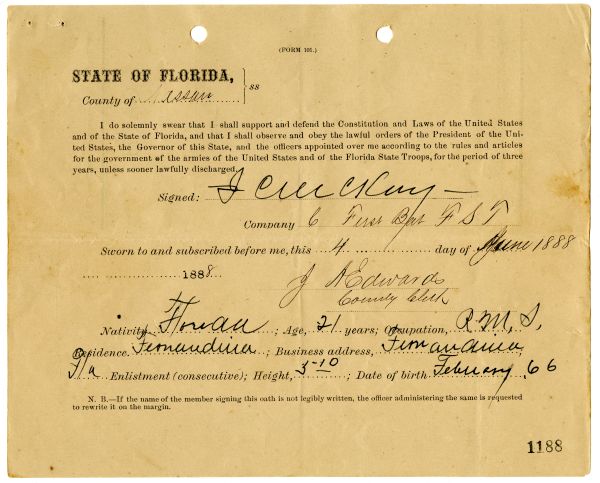 (FORM 101.)
STATE OF FLORIDA, } ss
County of Nassau
I do solemnly swear that I shall support and defend the Constitution and Laws of the United States
and of the State of Florida, and that I shall observe and obey the lawful orders of the President of the Uni-
ted States, the Governor of this State, and the officers appointed over me according to the rules and articles
for the government of the armies of the United States and of the Florida State Troops, for the period of three
years, unless sooner lawfully discharged.
Signed: J C McKay
Company C First Bat F S T
Sworn to and subscribed before me, this 4 day of June 1888
1888. J A Edwards
County Clerk
Nativity, Florida; Age, 21 years; Occupation, R. M. S.
Residence. Fernandina; Business address, Fernandina
Fla Enlistment (consecutive); Height, 5-10; Date of birth February, 66
N. B.—If the name of the member signing this oath is not legibly written, the officer administering the same is requested
to rewrite it on the margin.
1188